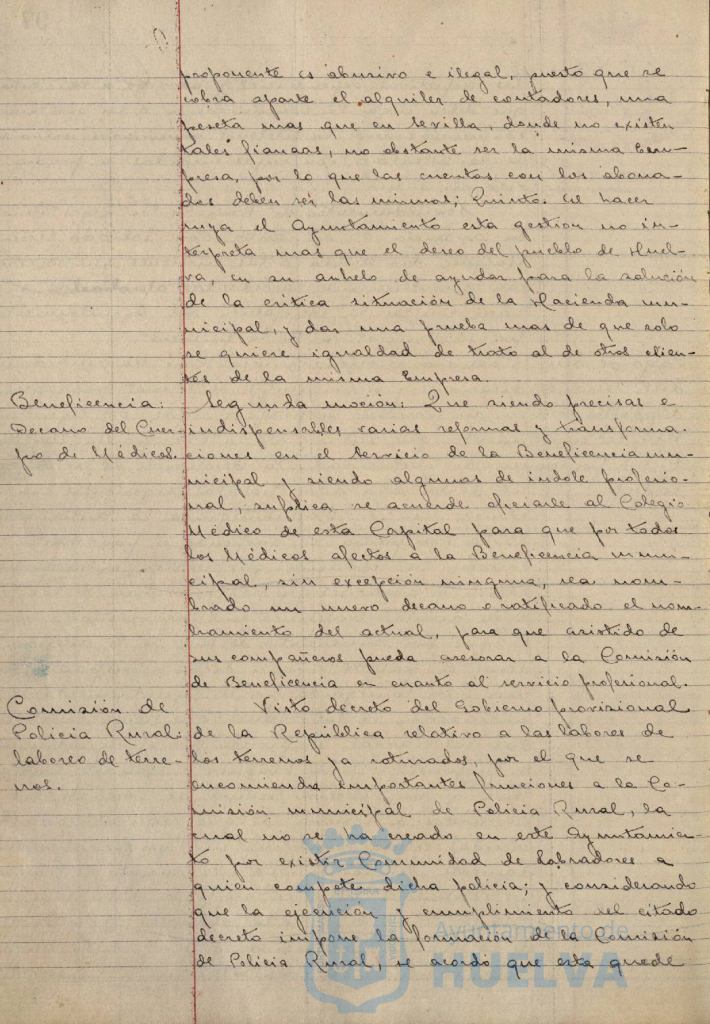 proponente es abusivo e ilegal, puesto que se
cobra aparte el alquiler de contadores, una
peseta mas que en Sevilla, donde no existen
tales fianzas, no obstante ser la misma Em-
presa, por lo que las cuentas con los abona-
dos deben ser las mismas; Quinto. Al hacer
suya el Ayuntamiento esta gestion no in-
terpreta mas que el deseo del pueblo de Huel-
va, en su anhelo de ayudar para la solución
de la critica situación de la Hacienda mu-
nicipal, y dar una prueba mas de que solo
se quiere igualdad de trato al de otros clien-
tes de la misma Empresa.
Beneficencia:
Decano del Cuer-
po de Médicos.
Segunda moción: Que siendo precisas e
indispensables varias reformas y transforma-
ciones en el servicio de la Beneficencia mu-
nicipal y siendo algunas de indole profesio-
nal, suplica se acuerde oficiarle al Colegio
Médico de esta Capital para que por todos
los Médicos afectos a la Beneficencia muni-
cipal, sin excepción ninguna, sea nom-
brado un nuevo decano o ratificado el nom-
bramiento del actual, para que asistido de
sus compañeros pueda asesorar a la Comisión
de Beneficencia en cuanto al servicio profesional.
Comisión de
Policia Rural:
laboreo de terre-
nos.
Visto decreto del Gobierno provisional
de la República relativo a las labores de
los terrenos ya roturados, por el que se
encomienda importantes funciones a la Co-
misión municipal de Policia Rural, la
cual no se ha creado en este Ayuntamien-
to por existir Comunidad de Labradores a
quien compete dicha policia; y considerando
que la ejecución y cumplimiento del citado
decreto impone la formación de la Comisión
de Policia Rural, se acordó que esta quede
Ayuntamiento de
HUELVA